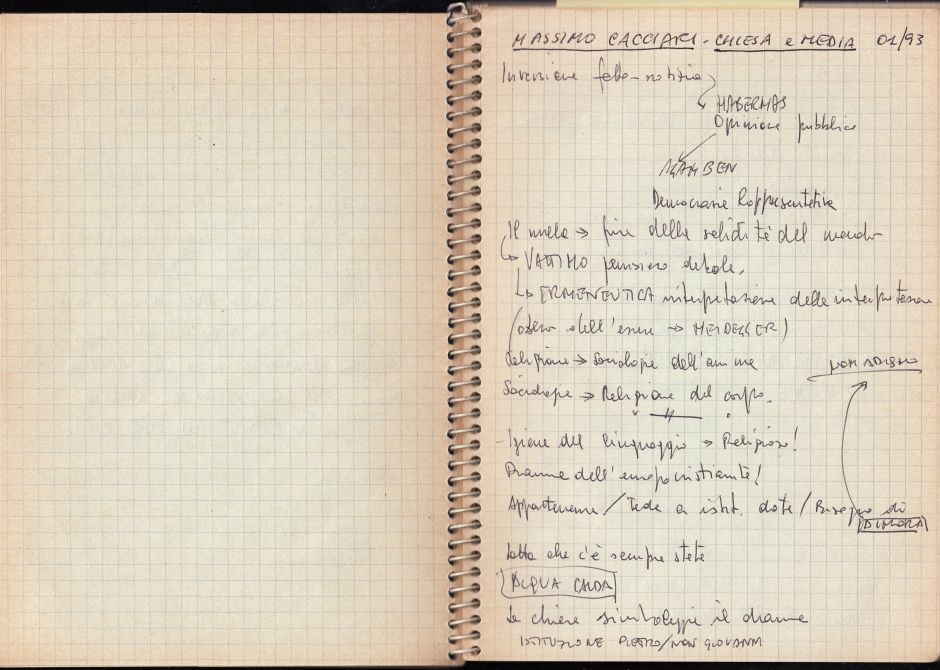 MASSIMO CACCIARI - CHIESA e MEDIA 01/93
Inversione fatto-notizia
HABERMAS
Opinione pubblica
AGAMBEN
Democrazia Rappresentativa
Il nulla → fine della solidità del mondo
↳ VATTIMO pensiero debole.
↳ ERMENEUTICA interpretazione delle interpretazioni
(oblio dell'essere → HEIDEGGER)
Religione → Sociologia dell'anima
NOMADISMO
Sociologia → Religione del corpo.
- Igiene del linguaggio → Religioso!
Dramma dell'europocristianità!
Appartenenza / Fede a istit. date / Bisogno di
DIMORA
Lotta che c'è sempre stata
ACQUA CALDA
La chiesa simboleggia il dramma
ISTITUZIONE PIETRO/NON GIOVANNI